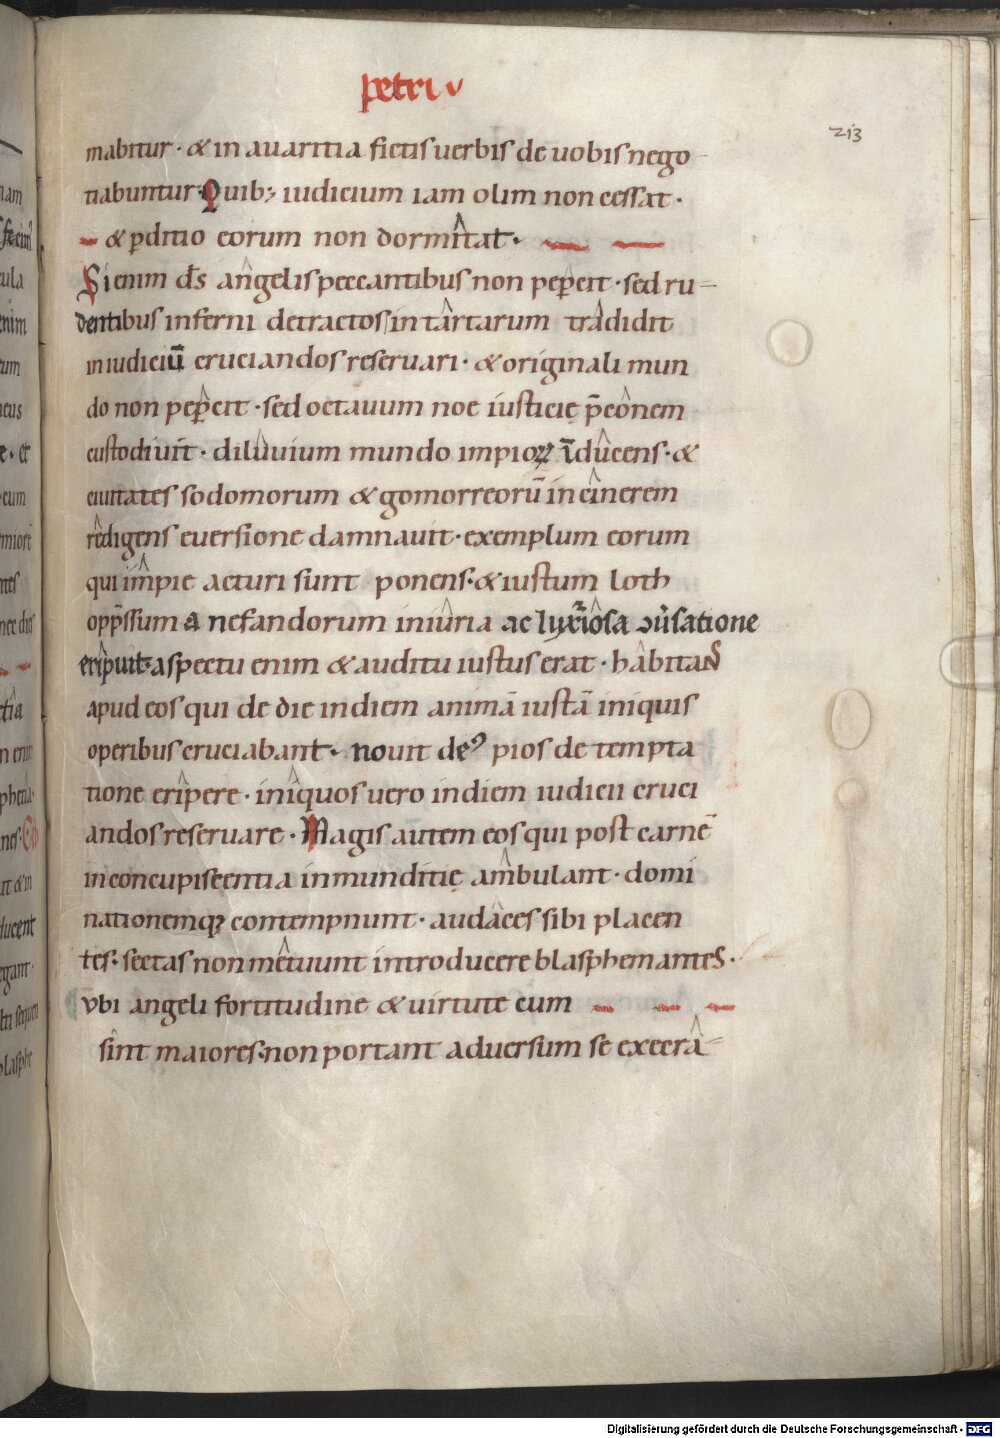 petri v
213
mabitur · & in auaritia fictis uerbis de uobis nego-
tiabuntur · Quib; iudicium iam olim non cessat ·
& p̱ditio eorum non dormitat ·
Si enim d̄s angelis peccantibus non pep̱cit · sed ru-
dentibus inferni detractos in tartarum tradidit
in iudiciū cruciandos reseruari · & originali mun
do non pep̱cit · sed octauum noe iusticię p̄conem
custodiuit · diluuium mundo impioꝝ īducens · &
ciuitates sodomorum & gomorreorū in cinerem
redigens euersione damnauit · exemplum eorum
qui impie acturi sunt ponens · & iustum loth
opp̄ssum a nefandorum iniuria ac luxͥosa ↄũsatione
eripuit · aspectu enim & auditu iustus erat · habitans
apud eos qui de die in diem animā iustā iniquis
operibus cruciabant · nouit deꝰ pios de tempta
tione eripere · iniquos uero in diem iudicii cruci
andos reseruare · Magis autem eos qui post carnē
in concupiscentia inmunditię ambulant · domi
nationemq; contempnunt · audaces sibi placen
tes · sectas non metuunt introducere blasphemantes ·
vbi angeli fortitudine & uirtute cum
sint maiores · non portant aduersum se execra-
Digitalisierung gefördert durch die Deutsche Forschungsgemeinschaft - DFG